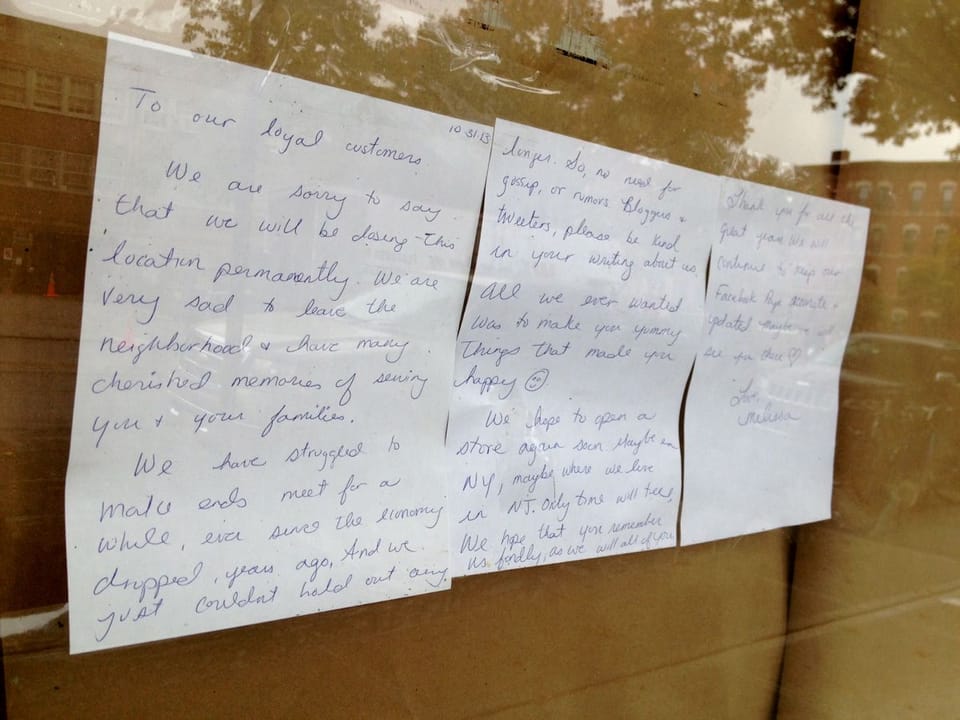 10-31-13
To
our loyal customers
We are sorry to say
that we will be closing this
location permanently. We are
very sad to leave the
neighborhood & have many
cherished memories of serving
you & your families.
We have struggled to
make ends meet for a
while, ever since the economy
dropped, years ago. And we
just couldn't hold out any
longer. So, no need for
gossip, or rumors. Bloggers &
tweeters, please be kind
in your writing about us.
All we ever wanted
was to make you yummy
things that made you
happy ☺
We hope to open a
store again soon. Maybe in
NY, maybe where we live
in NJ. Only time will tell.
We hope that you remember
us fondly, as we will all of you
Thank you for all the
great years. We will
continue to keep our
Facebook Page accurate &
updated maybe we will
see you there ♡
Love,
Melissa